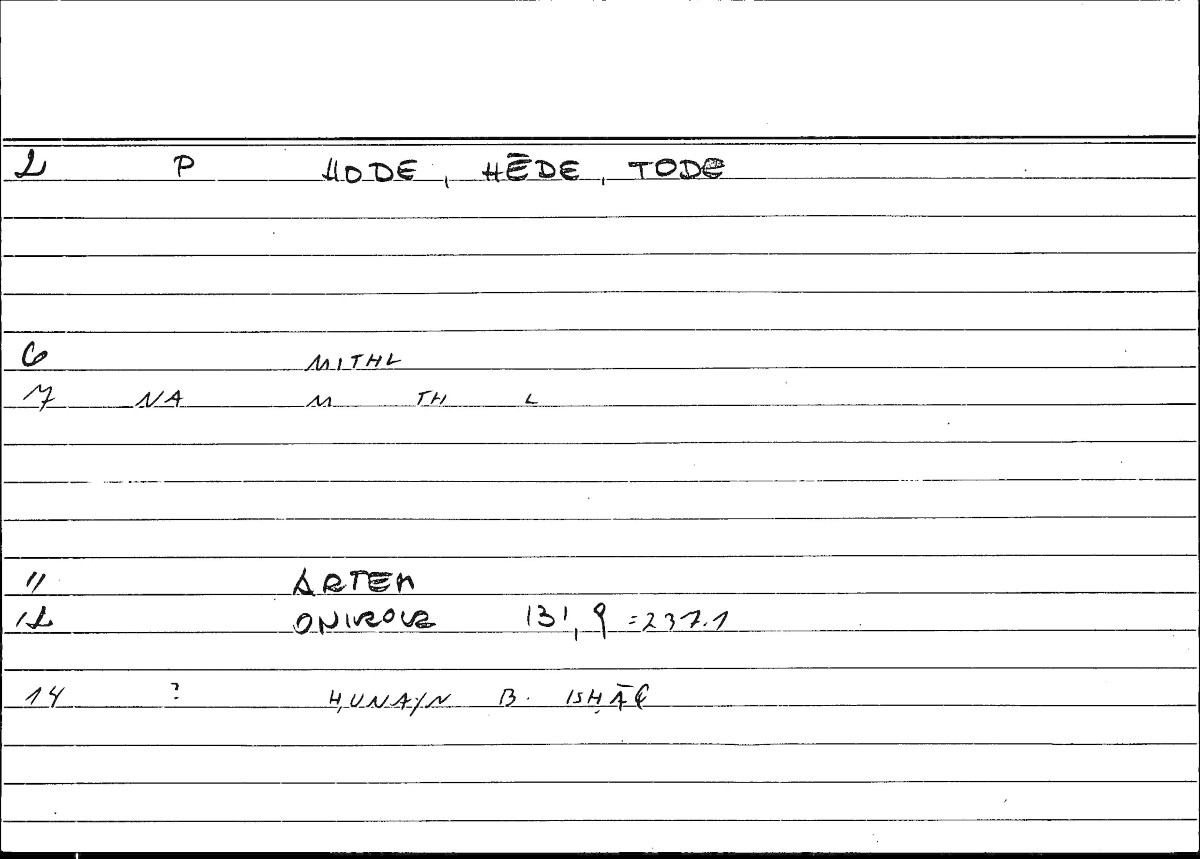 2 P HODE, HĒDE, TODE
6 MITHL
7 NA M TH L
11 ARTEM
12 ONIROCR 131, 9 =237.1
14 ? ḤUNAYN B. ISḤĀQ